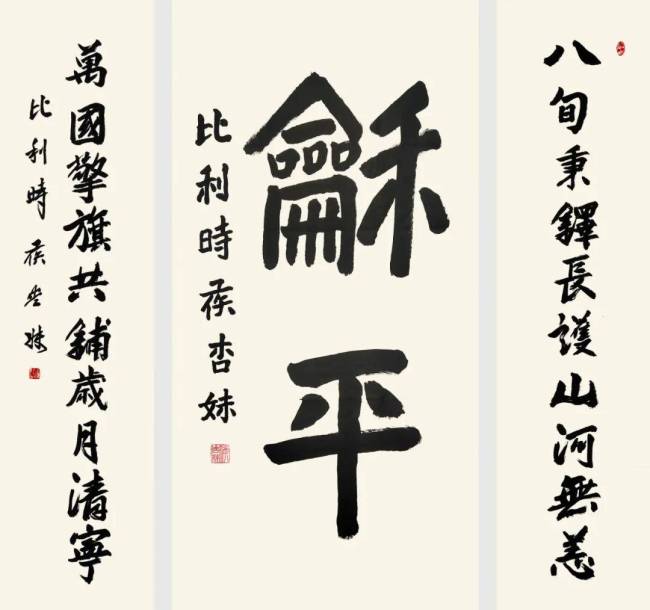 八旬秉鐸長護山河無恙
龢平
比利時侯杏妹
萬國擎旗共舖歲月清寧
比利時侯杏妹